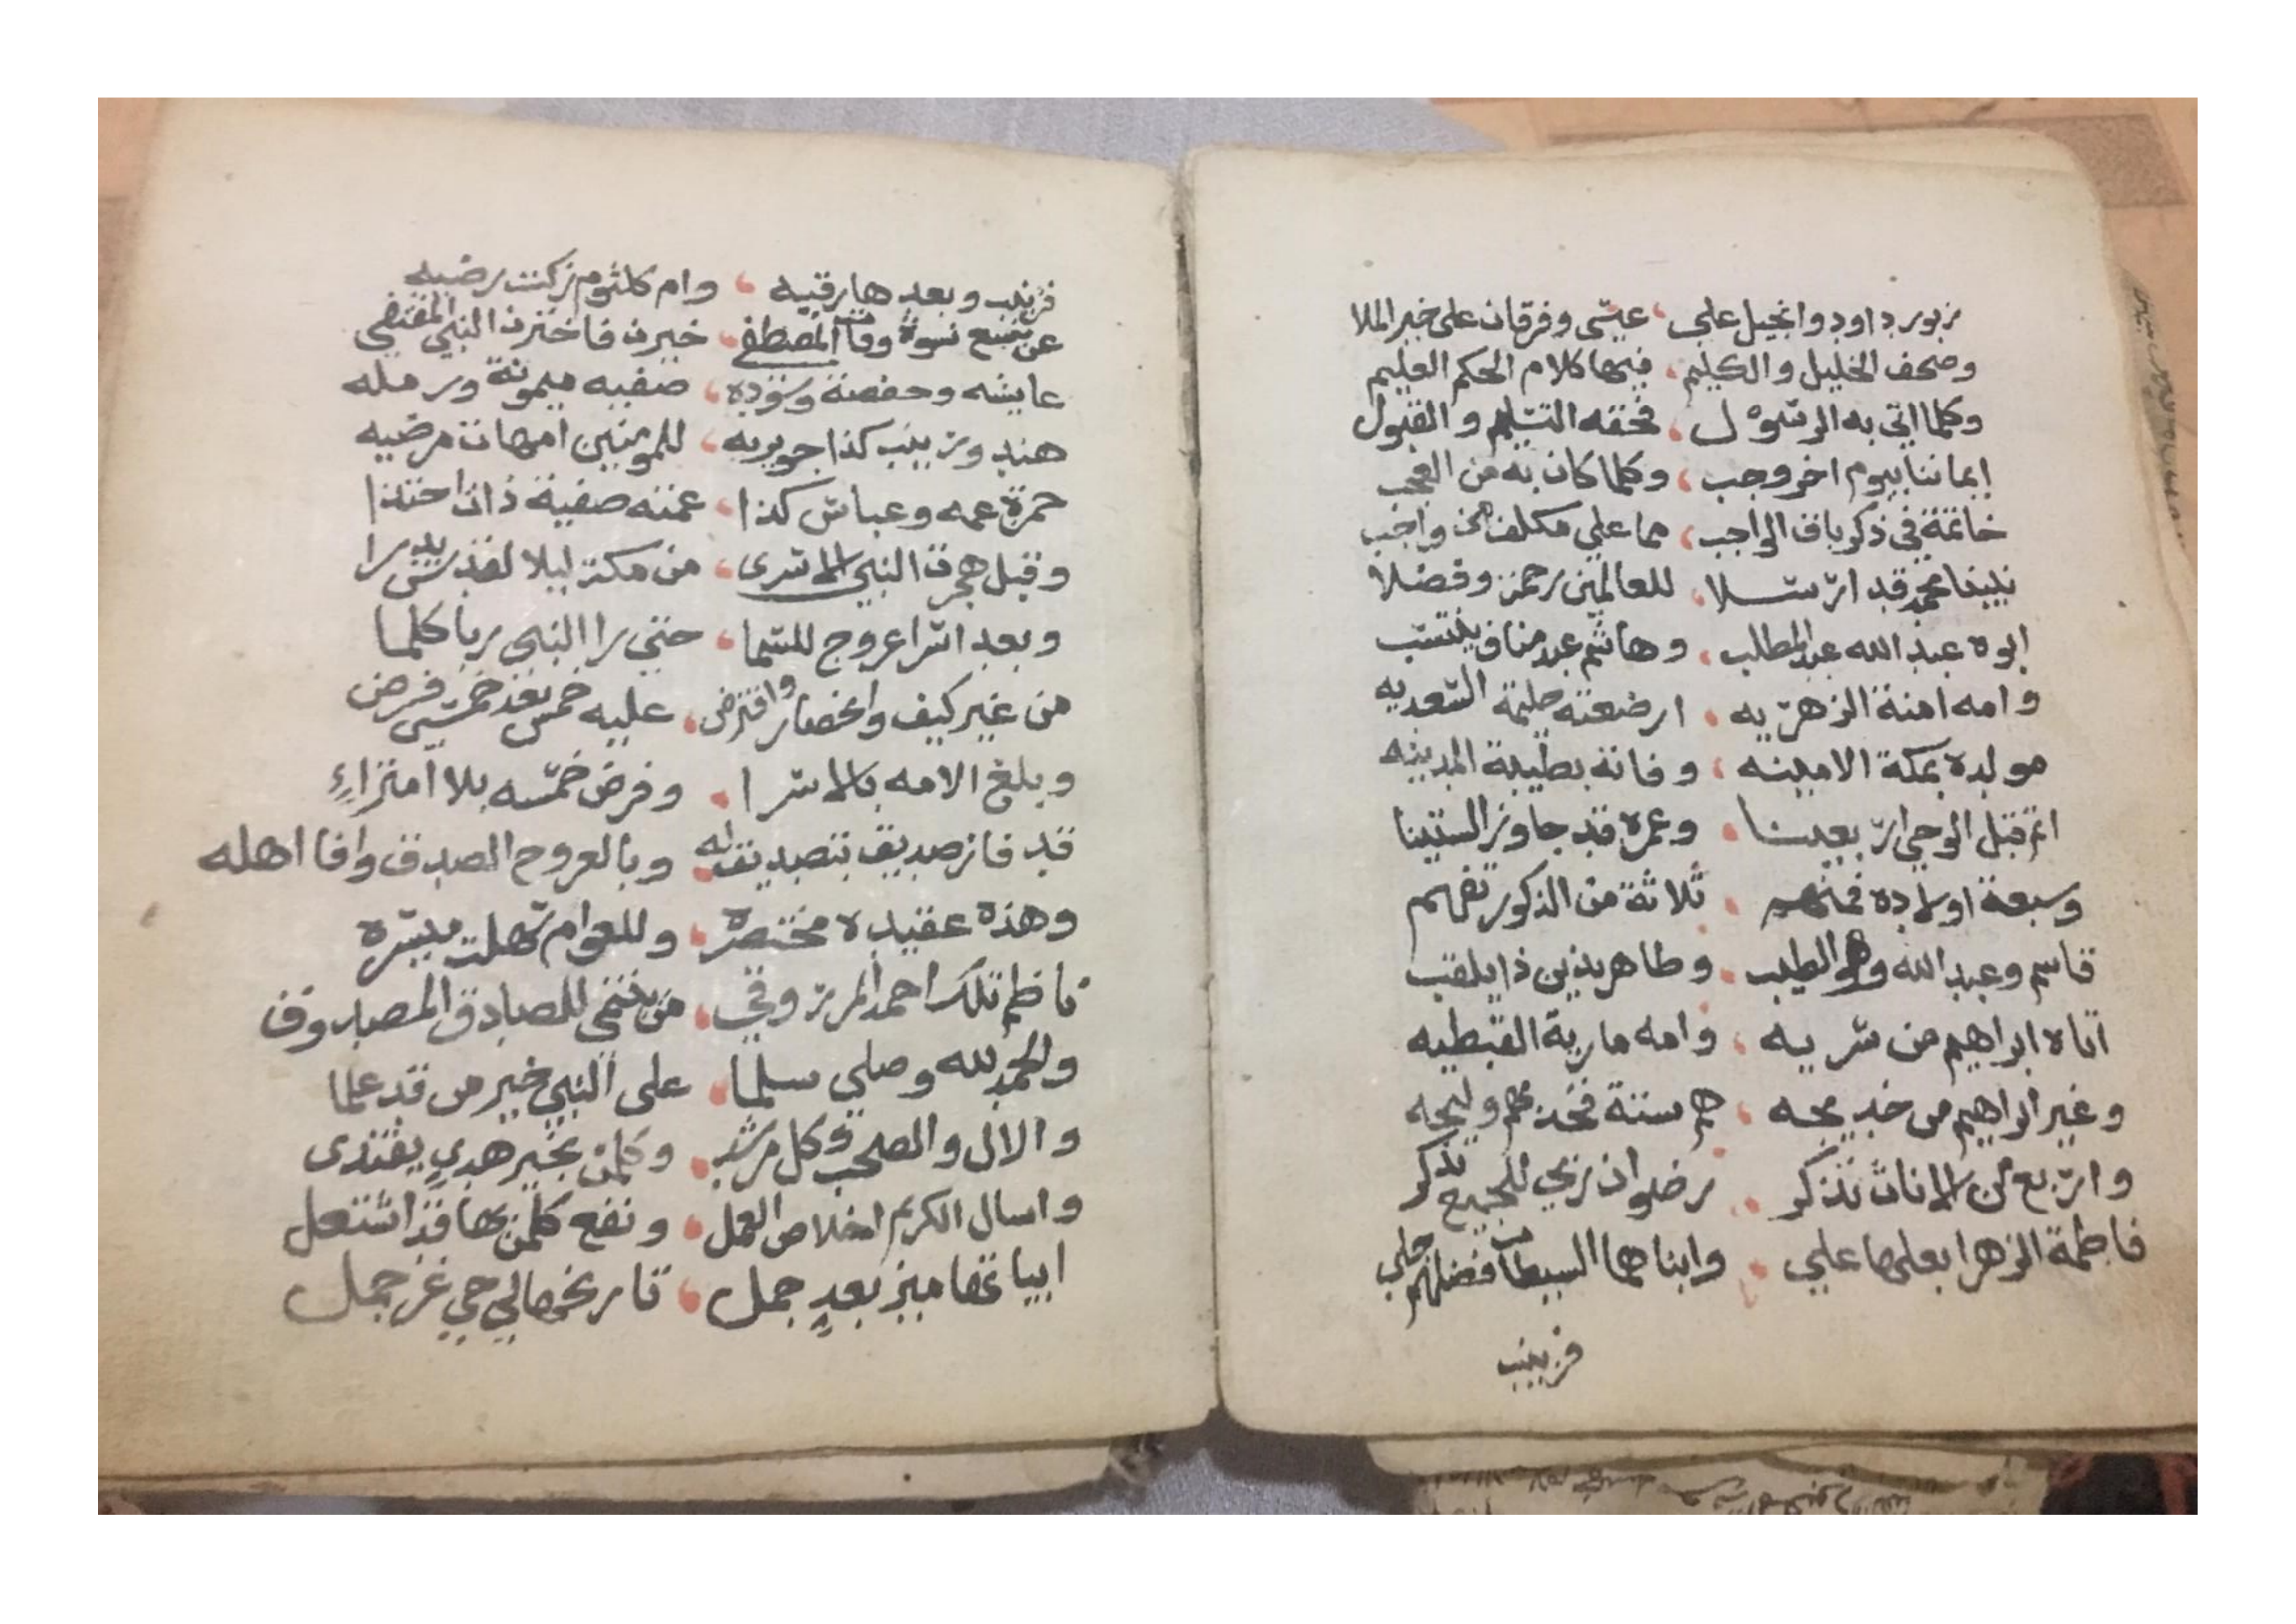 زبور داود وانجيل علي، عيسى وفرقان على خير الملا
وصحف الخليل والكليم، فيها كلام الحكم العليم
وكلما اتى به الرسول، فحقه التسليم والقبول
ايماننا بيوم اخر وجب، وكلما كان به من العجب
خاتمة في ذكر باقي الواجب، مما على مكلف من واجب
نبينا محمد قد ارسلا، للعالمين رحمة وفضلا
ابوه عبد الله عبد المطلب، وهاشم عبد مناف ينتسب
وامه امنة الزهريه، ارضعته حليمة السعديه
مولده بمكة الامينه، وفاته بطيبة المدينه
اتم قبل الوحي اربعينا، وعمره قد جاوز الستينا
وسبعة اولاده فمنهم، ثلاثة من الذكور تفهم
قاسم وعبد الله وهو الطيب، وطاهر بذين ذا يلقب
اتاه ابراهيم من سريه، وامه مارية القبطيه
وغير ابراهيم من خديجه، هم ستة فخذ بهم وليجه
واربع من الاناث تذكر، رضوان ربي للجميع يذكر
فاطمة الزهرا بعلها علي، وابناهما السبطان فضلهم جلي
فزينب
فزينب وبعدها رقيه، وام كلثوم زكت رضيه
عن تسع نسوة وفاة المصطفى، خيرن فاخترن النبي المقتفى
عايشه وحفصة وسوده، صفيه ميمونة ورمله
هند وزينب كذا جويريه، للمومنين امهات مرضيه
حمزة عمه وعباس كذا، عمته صفية ذات احتذا
وقبل هجرت النبي الاسرى، من مكة ليلا لقدس يدرا
وبعد اسرا عروج للسما، حتى را النبي ربا كلما
من غير كيف وانحصار وافترض، عليه خمس بعد خمسين فرض
وبلغ الامه بالاسرا، وفرض خمسه بلا امتراء
قد فاز صديق بتصديق له، وبالعروج الصدق وافا اهله
وهذه عقيدة مختصره، وللعوام سهلت ميسره
ناظم تلك احمد المرزوقي، من ينتمي للصادق المصدوق
والحمد لله وصلى سلما، على النبي خير من قد علما
والال والصحب وكل مرشد، وكلمن بخير هدي يقتدى
واسال الكريم اخلاص العمل، ونفع كلمن بها قد اشتغل
ابياتها ميز بعد جمل، تاريخها لي حي غر جمل